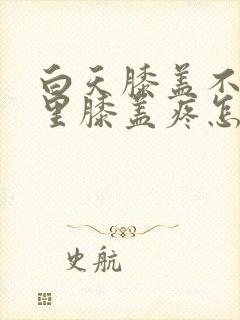 白天膝盖不
里膝盖疼怎
史航